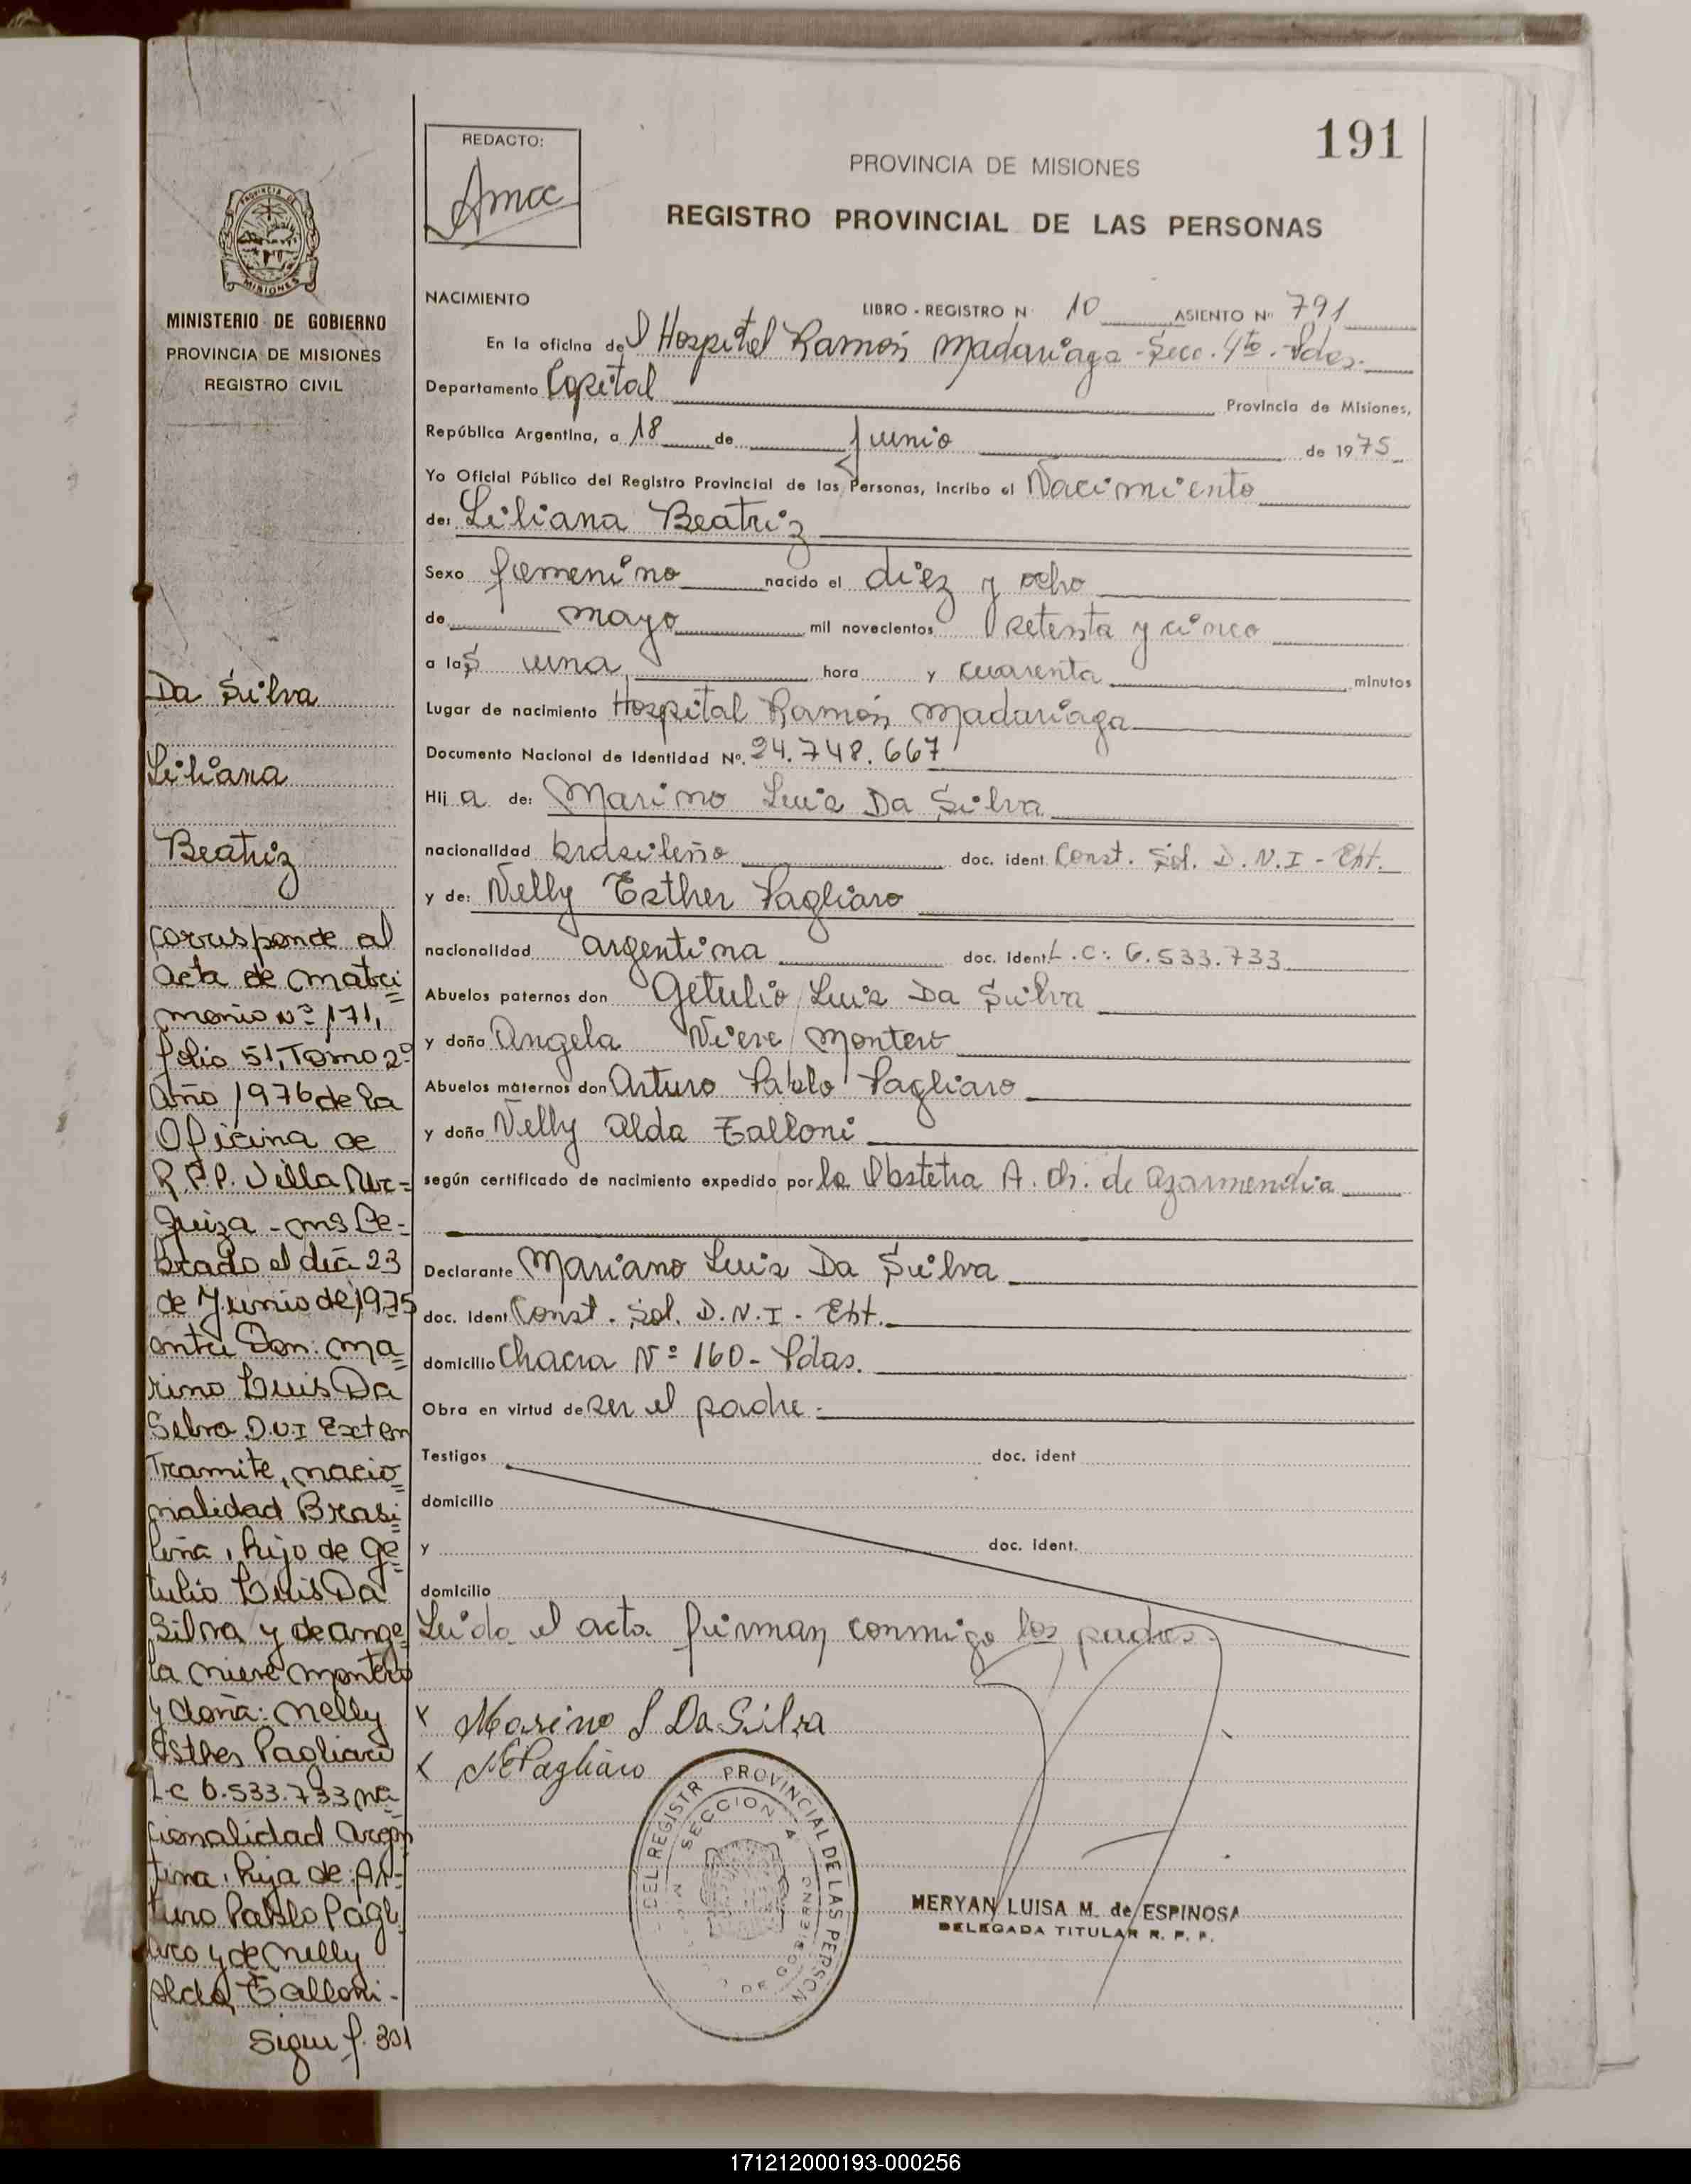 191
REDACTO:
PROVINCIA DE MISIONES
REGISTRO PROVINCIAL DE LAS PERSONAS
PROVINCIA DE
MISIONES
MINISTERIO DE GOBIERNO
PROVINCIA DE MISIONES
REGISTRO CIVIL
Da Silva
Liliana
Beatriz
corresponde al
acta de matri=
monio Nº 171,
folio 51, Tomo 2º
Año 1976 de la
Oficina de
R.P.P. Villa Ur=
quiza - ms Ce=
brado el día 23
de Junio de 1975
entre Don: Ma=
rino Luis Da
Silva D.N.I Ext en
Tramite, nacio=
nalidad Brasi=
leña, hijo de Ge=
tulio Luis Da
Silva y de Ange=
la Niere Montero
y doña: Nelly
Esther Pagliaro
L.C 6.533.733 na=
cionalidad Argen
tina, hija de: Ar=
turo Pablo Pagli
aro y de Nelly
Alda Talloni.
Sigue f. 301
NACIMIENTO
LIBRO - REGISTRO N 10 ASIENTO Nº 791
En la oficina del Hospital Ramón Madariaga - Secc. 4ta. Pdas.
Departamento Capital Provincia de Misiones,
República Argentina, a 18 de Junio de 1975
Yo Oficial Público del Registro Provincial de las Personas, incribo el Nacimiento
de: Liliana Beatriz
Sexo femenino nacido el diez y ocho
de mayo mil novecientos setenta y cinco
a las una hora y cuarenta minutos
Lugar de nacimiento Hospital Ramón Madariaga
Documento Nacional de Identidad Nº. 24.748.667
Hij a de: Marino Luis Da Silva
nacionalidad brasileño doc. ident. Const. Sol. D.N.I - Ext.
y de: Nelly Esther Pagliaro
nacionalidad argentina doc. ident. L.C: 6.533.733
Abuelos paternos don Getulio Luis Da Silva
y doña Angela Niere Montero
Abuelos maternos don Arturo Pablo Pagliaro
y doña Nelly Alda Talloni
según certificado de nacimiento expedido por la Obstetra A. Ch. de Azarmendia
Declarante Mariano Luis Da Silva
doc. ident Const. Sol. D.N.I - Ext.
domicilio Chacra Nº 160 - Pdas.
Obra en virtud de ser el padre.
Testigos doc. ident
domicilio
y doc. ident.
domicilio
Leida el acta firman conmigo los padres.
x Marino L Da Silva
x N E Pagliaro
DEL REGISTR PROVINCIAL DE LAS PERSON
SECCION 4
DE GOBIERNO
MERYAN LUISA M. de ESPINOSA
DELEGADA TITULAR R. P. P.
171212000193-000256